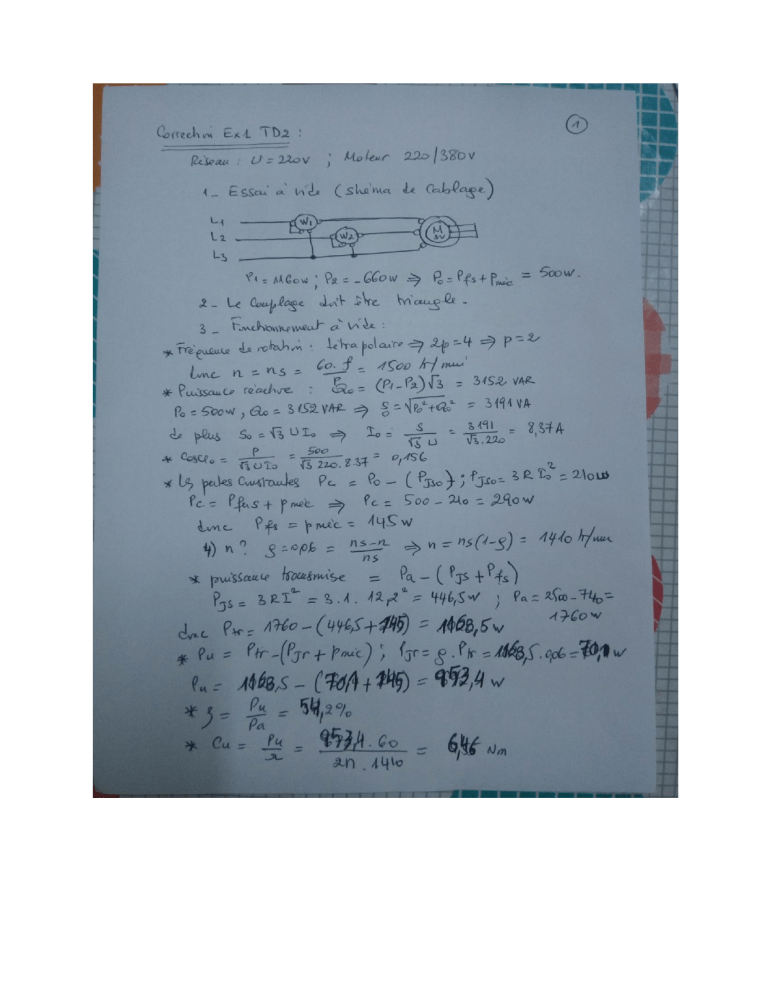 1
Correction Ex1 TD2 :
Réseau : U = 220V ; Moteur 220/380V
1_ Essai à vide (shéma de Cablage)
L1 W1
L2 W2 M 3~
L3
P1 = 1160W ; P2 = -660W ⇒ P0 = Pfs + Pméc = 500W.
2_ Le Couplage doit être triangle.
3_ Fonctionnement à vide :
* Fréquence de rotation : tétrapolaire ⇒ 2p = 4 ⇒ p = 2
donc n = ns = 60.f / p = 1500 tr/min
* Puissance réactive : Q0 = (P1-P2)√3 = 3152 VAR
P0 = 500W, Q0 = 3152 VAR ⇒ S0 = √P0² + Q0² = 3191 VA
de plus S0 = √3 U I0 ⇒ I0 = S / √3 U = 3191 / √3.220 = 8,37A
* cosφ0 = P / √3 U I0 = 500 / √3 220.8.37 = 0,156
* Les pertes Constantes Pc = P0 - (PJs0) ; PJs0 = 3 R I0² = 210W
Pc = Pfus + pméc ⇒ Pc = 500 - 210 = 290W
donc Pfs = pméc = 145W
4) n? g = 0,06 = ns-n / ns ⇒ n = ns(1-g) = 1410 tr/min
* puissance transmise = Pa - (PJs + Pfs)
PJs = 3RI² = 3.1.12,2² = 446,5W ; Pa = 2500 - 740 =
1760W
donc Ptr = 1760 - (446,5 + 145) = 1168,5W
* Pu = Ptr - (PJr + pméc) ; PJr = g.Ptr = 1168,5.0,06 = 70,1W
Pu = 1168,5 - (70,1 + 145) = 953,4W
* η = Pu / Pa = 54,2%
* Cu = Pu / Ω = 953,4.60 / 2π.1410 = 6,46 Nm